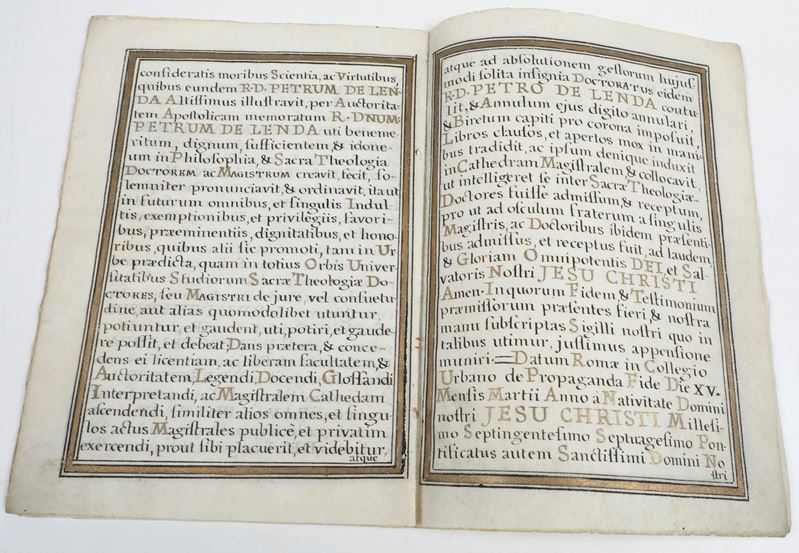 consideratis moribus Scientia, ac Virtutibus,
quibus eundem R·D· PETRUM DE LEN-
DA Altissimus illustravit, per Auctorita-
tem Apostolicam memoratum R·DNUM·
PETRUM DE LENDA uti beneme-
ritum, dignum, sufficientem & idone-
um in Philosophia, & Sacra Theologia
DOCTOREM ac MAGISTRUM creavit, fecit, so-
lemniter pronunciavit, & ordinavit, ita ut
in futurum omnibus, et singulis Indul-
tis, exemptionibus, et privilegiis, favori-
bus, præeminentiis, dignitatibus, et hono-
ribus, quibus alii sic promoti, tam in Ur-
be prædicta, quam in totius Orbis Univer-
sitatibus Studiorum Sacræ Theologiæ Do-
CTORES, seu MAGISTRI de jure, vel consuetu-
dine, aut alias quomodolibet utuntur,
potiuntur, et gaudent, uti, potiri, et gaude-
re possit, et debeat; Dans præterea, & conce-
dens ei licentiam, ac liberam facultatem, &
Auctoritatem, Legendi, Docendi, Glossandi
Interpretandi, ac Magistralem Cathedam
ascendendi, similiter alios omnes, et singu-
los actus Magistrales publicè, et privatim
exercendi, prout sibi placuerit, et videbitur,
atque
atque ad absolutionem gestorum hujus-
modi solita insignia DOCTORATUS eidem
R·D· PETRO DE LENDA contu-
lit, & Annulum ejus digito annulari,
& Biretum capiti pro corona imposuit,
Libros clausos, et apertos mox in mani-
bus tradidit, ac ipsum denique induxit
in Cathedram Magistralem & collocavit,
ut intelligeret se inter Sacræ Theologiæ
Doctores fuisse admissum & receptum,
pro ut ad osculum fraterum a singulis
Magistris, ac Doctoribus ibidem præsenti-
bus admissus, et receptus fuit, ad laudem,
& Gloriam Omnipotentis DEI, et Sal-
vatoris Nostri JESU CHRISTI
Amen· Inquorum Fidem & Testimonium
præmissorum præsentes fieri & nostra
manu subscriptas Sigilli nostri quo in
talibus utimur, jussimus appensione
muniri· Datum Romæ in Collegio
Urbano de Propaganda Fide Die XV·
Mensis Martii Anno à Nativitate Domini
nostri JESU CHRISTI Millesi-
mo Septingentesimo Septuagesimo Pon-
tificatus autem Sanctissimi Domini No
stri